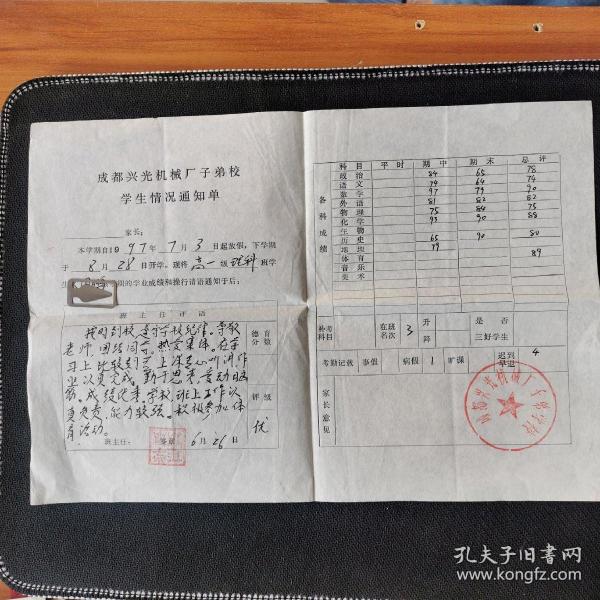 成都兴光机械厂子弟校
学生情况通知单
家长:
本学期自1997年7月3日起放假,下学期
于8月28日开学。现将高一级理科班学
期的学业成绩和操行请语通知于后:
班主任评语
按时到校,遵守学校纪律。尊敬
老师,团结同学,热爱集体。在学
习上比较刻苦,上课专心听讲,作
业认真完成,勤于思考,劳动积
极。成绩优秀。学校、班上工作认
真负责,能力较强。积极参加体
育活动。
德育
分数
评级
优
班主任: 签章 6月26日
各科成绩
科目 平时 期中 期末 总评
政治 84 65 78
语文 79 64 74
数学 97 79 90
外语 81 82 82
物理 75 84 75
化学 93 90 88
生物
历史 65 90 80
地理 79
体育 89
音乐
美术
补考
科目
在班
名次 3
升
降
是否
三好学生
考勤记载 事假 病假 1 旷课 迟到
早退 4
家长意见
成都兴光机械厂子弟学校
孔夫子旧书网
www.kongfz.com